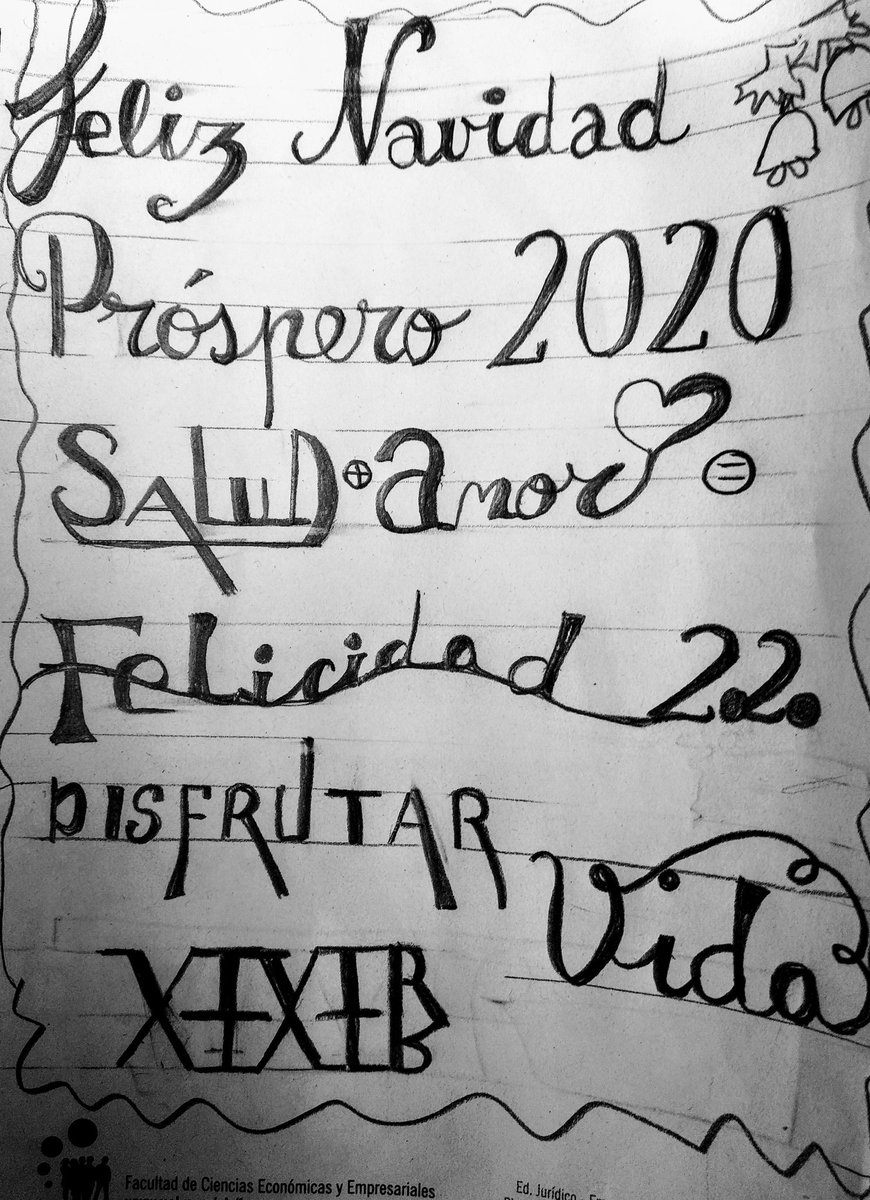 Feliz Navidad
Próspero 2020
SALUD + Amor =
Felicidad 2.2.
DISFRUTAR
Vida
XEXEB
Facultad de Ciencias Económicas y Empresariales
Ed. Jurídico